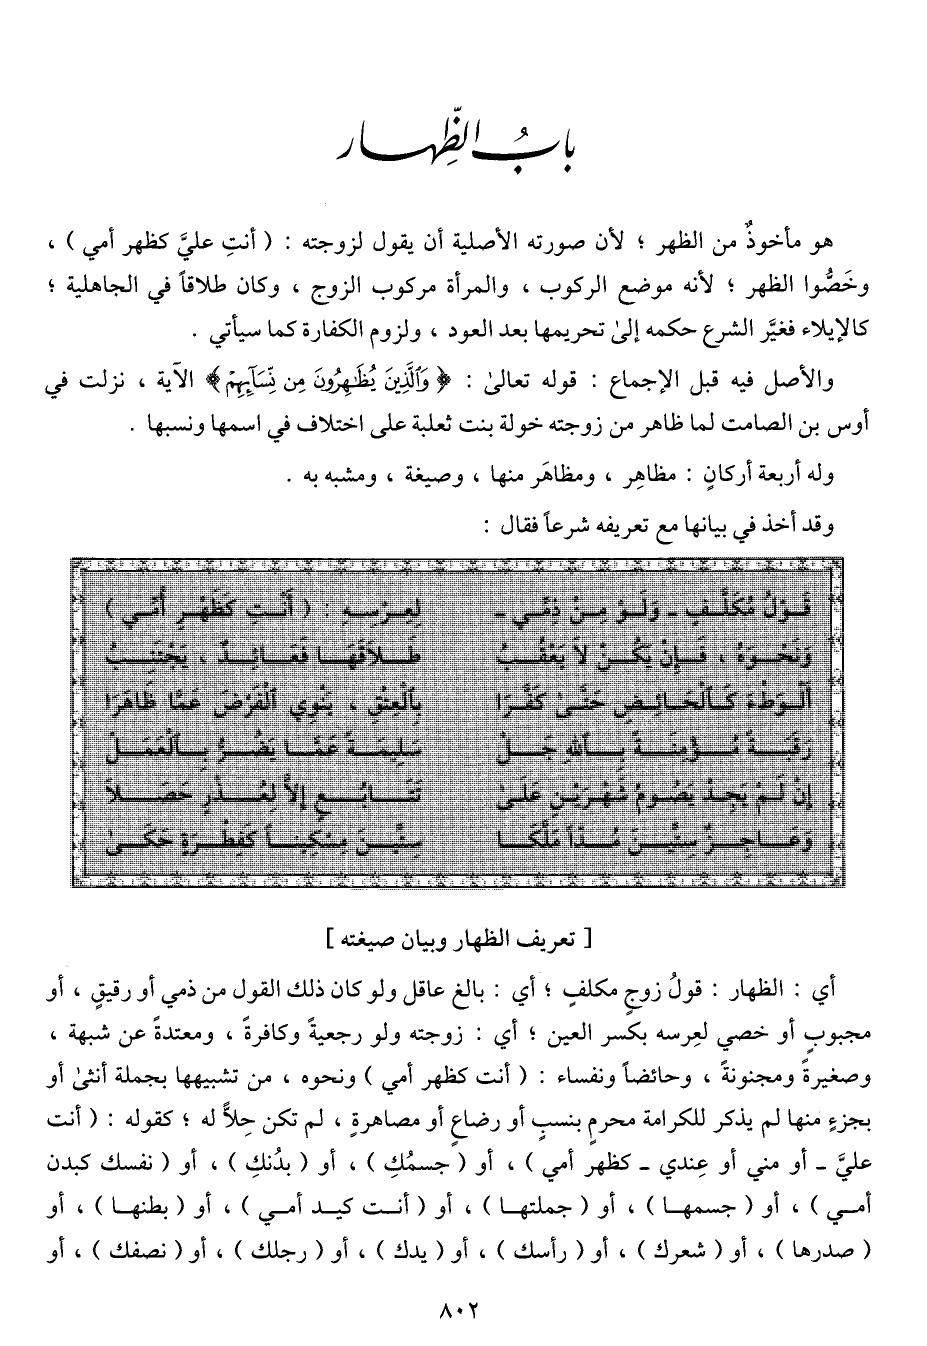 بابُ الظِّهار
هو مأخوذٌ من الظهر ؛ لأن صورته الأصلية أن يقول لزوجته : ( أنتِ عليَّ كظهر أمي ) ،
وخَصُّوا الظهر ؛ لأنه موضع الركوب ، والمرأة مركوب الزوج ، وكان طلاقاً في الجاهلية ؛
كالإيلاء فغيَّر الشرع حكمه إلىٰ تحريمها بعد العود ، ولزوم الكفارة كما سيأتي .
والأصل فيه قبل الإجماع : قوله تعالىٰ : ﴿ وَٱلَّذِينَ يُظَٰهِرُونَ مِن نِّسَآئِهِمْ ﴾ الآية ، نزلت في
أوس بن الصامت لما ظاهر من زوجته خولة بنت ثعلبة على اختلاف في اسمها ونسبها .
وله أربعة أركانٍ : مظاهِر ، ومظاهَر منها ، وصيغة ، ومشبه به .
وقد أخذ في بيانها مع تعريفه شرعاً فقال :
قَوْلُ مُكَلَّفٍ ـ وَلَوْ مِنْ ذِمِّي ـ لِعِرْسِهِ : ( أَنْتِ كَظَهْرِ أُمِّي )
وَنَحْوَهُ ، فَإِنْ يَكُنْ لاَ يَعْقُبُ طَلاَقَهَا فَعَائِدٌ ، يَجْتَنِبُ
ٱلْوَطْءَ كَٱلْحَائِضِ حَتَّىٰ كَفَّرَا بِٱلْعِتْقِ ، يَنْوِي ٱلْفَرْضَ عَمَّا ظَاهَرَا
رَقَبَةً مُؤْمِنَةً بِٱللهِ جَلّْ سَلِيمَةً عَمَّا يَضُرُّ بِٱلْعَمَلْ
إِنْ لَمْ يَجِدْ يَصُومُ شَهْرَيْنِ عَلَىٰ تَتَابُعٍ إِلاَّ لِعُذْرٍ حَصَلاَ
وَعَاجِزٌ سِتِّينَ مُدّاً مَلَّكَا سِتِّينَ مِسْكِيناً كَفِطْرَةٍ حَكَىٰ
[ تعريف الظهار وبيان صيغته ]
أي : الظهار : قولُ زوجٍ مكلفٍ ؛ أي : بالغ عاقل ولو كان ذلك القول من ذمي أو رقيقٍ ، أو
مجبوبٍ أو خصي لعِرسه بكسر العين ؛ أي : زوجته ولو رجعيةً وكافرةً ، ومعتدةً عن شبهة ،
وصغيرةً ومجنونةً ، وحائضاً ونفساء : ( أنت كظهر أمي ) ونحوه ، من تشبيهها بجملة أنثىٰ أو
بجزءٍ منها لم يذكر للكرامة محرمٍ بنسبٍ أو رضاعٍ أو مصاهرةٍ ، لم تكن حِلاًّ له ؛ كقوله : ( أنت
عليَّ ـ أو مني أو عِندي ـ كظهر أمي ) ، أو ( جسمُكِ ) ، أو ( بدُنكِ ) ، أو ( نفسك كبدن
أمي ) ، أو ( جسمها ) ، أو ( جملتها ) ، أو ( أنت كيد أمي ) ، أو ( بطنها ) ، أو
( صدرها ) ، أو ( شعرك ) ، أو ( رأسك ) ، أو ( يدك ) ، أو ( رجلك ) ، أو ( نصفك ) ، أو
٨٠٢